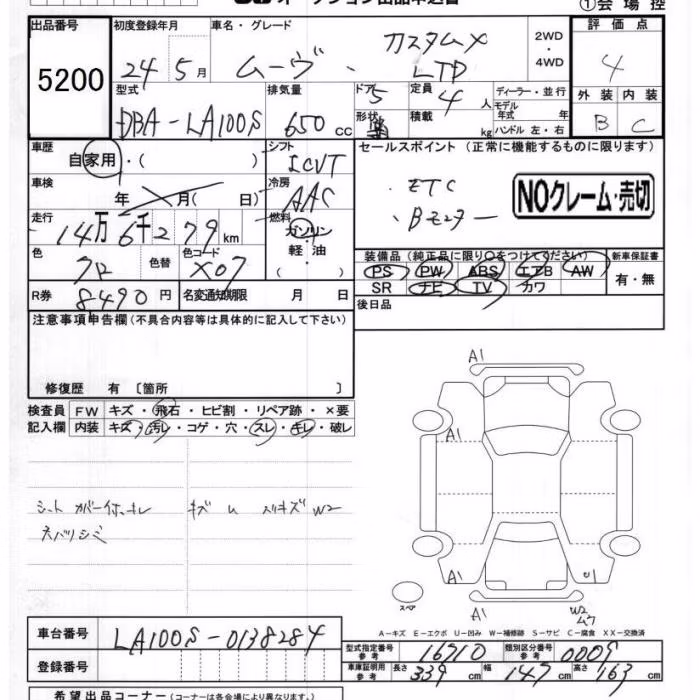 オークション出品申込書
①会場控
出品番号 5200
初度登録年月 24年5月
車名・グレード ムーヴ、カスタムX LTD
2WD・4WD
評価点 4
型式 DBA-LA100S
排気量 650cc
ドア 5
形状
定員 4人
積載 kg
ディーラー・並行
モデル年式 年
ハンドル 左・右
外装 B
内装 C
車歴 自家用・( )
シフト ICVT
セールスポイント (正常に機能するものに限ります)
車検 年 月( 日)
冷房 AAC
・ETC
・Bモニター
NOクレーム・売切
走行 14万6千279km
燃料 ガソリン 軽・油 ( )
色 クロ
色替
色コード X07
装備品 (純正品に限り○をつけてください)
新車保証書 有・無
PS PW ABS エアB AW
SR ナビ TV カワ
R券 8490円
名変通知期限 月 日
後日品
注意事項申告欄(不具合内容等は具体的に記入して下さい)
修復歴 有 〔箇所 〕
検査員記入欄
FW キズ・飛石・ヒビ割・リペア跡・×要
内装 キズ・汚レ・コゲ・穴・スレ・キレ・破レ
シートカバー付、キレ
ネバリシミ
キズ
キズ W2
A1
A1
A1
A1
U1
W2
スペア
A-キズ E-エクボ U-凹み W-補修跡 S-サビ C-腐食 XX-交換済
車台番号 LA100S-0138284
登録番号
型式指定番号 参考 16710
類別区分番号 参考 0009
車庫証明用 参考 長さ 339cm 幅 147cm 高さ 163cm
希望出品コーナー(コーナーは各会場により異なります。)